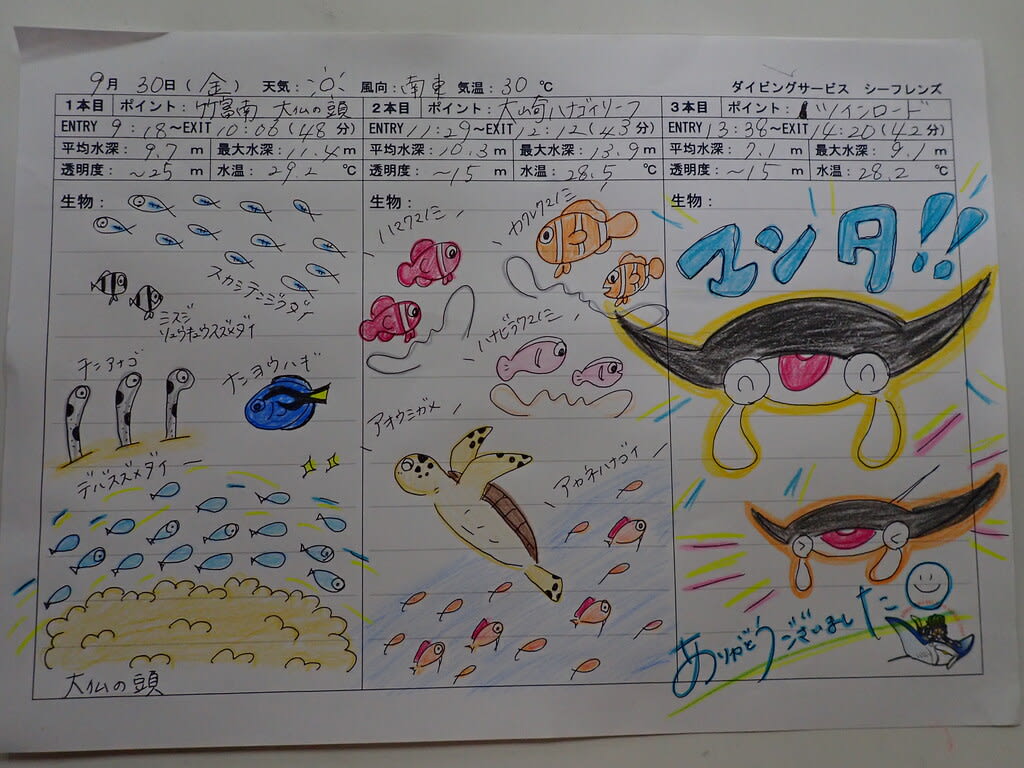 9月 30日(金) 天気: 風向:南東 気温:30℃ ダイビングサービス シーフレンズ
1本目 ポイント:竹富南 大仏の頭
ENTRY 9:18～EXIT 10:06(48分)
平均水深:9.7m 最大水深:11.4m
透明度:～25m 水温:29.2℃
生物:
スカシテンジクダイ
ミスジ
リュウキュウスズメダイ
チンアナゴ
ナンヨウハギ
デバスズメダイー
大仏の頭
2本目 ポイント:大崎ハナゴイリーフ
ENTRY 11:29～EXIT 12:12(43分)
平均水深:10.3m 最大水深:13.9m
透明度:～15m 水温:28.5℃
生物:
ハマクマノミ
カクレクマノミ
ハナビラクマノミ
アオウミガメ
アカネハナゴイ
3本目 ポイント:ツインロード
ENTRY 13:38～EXIT 14:20(42分)
平均水深:7.1m 最大水深:9.1m
透明度:～15m 水温:28.2℃
生物:
マンタ!!
ありがとうございました